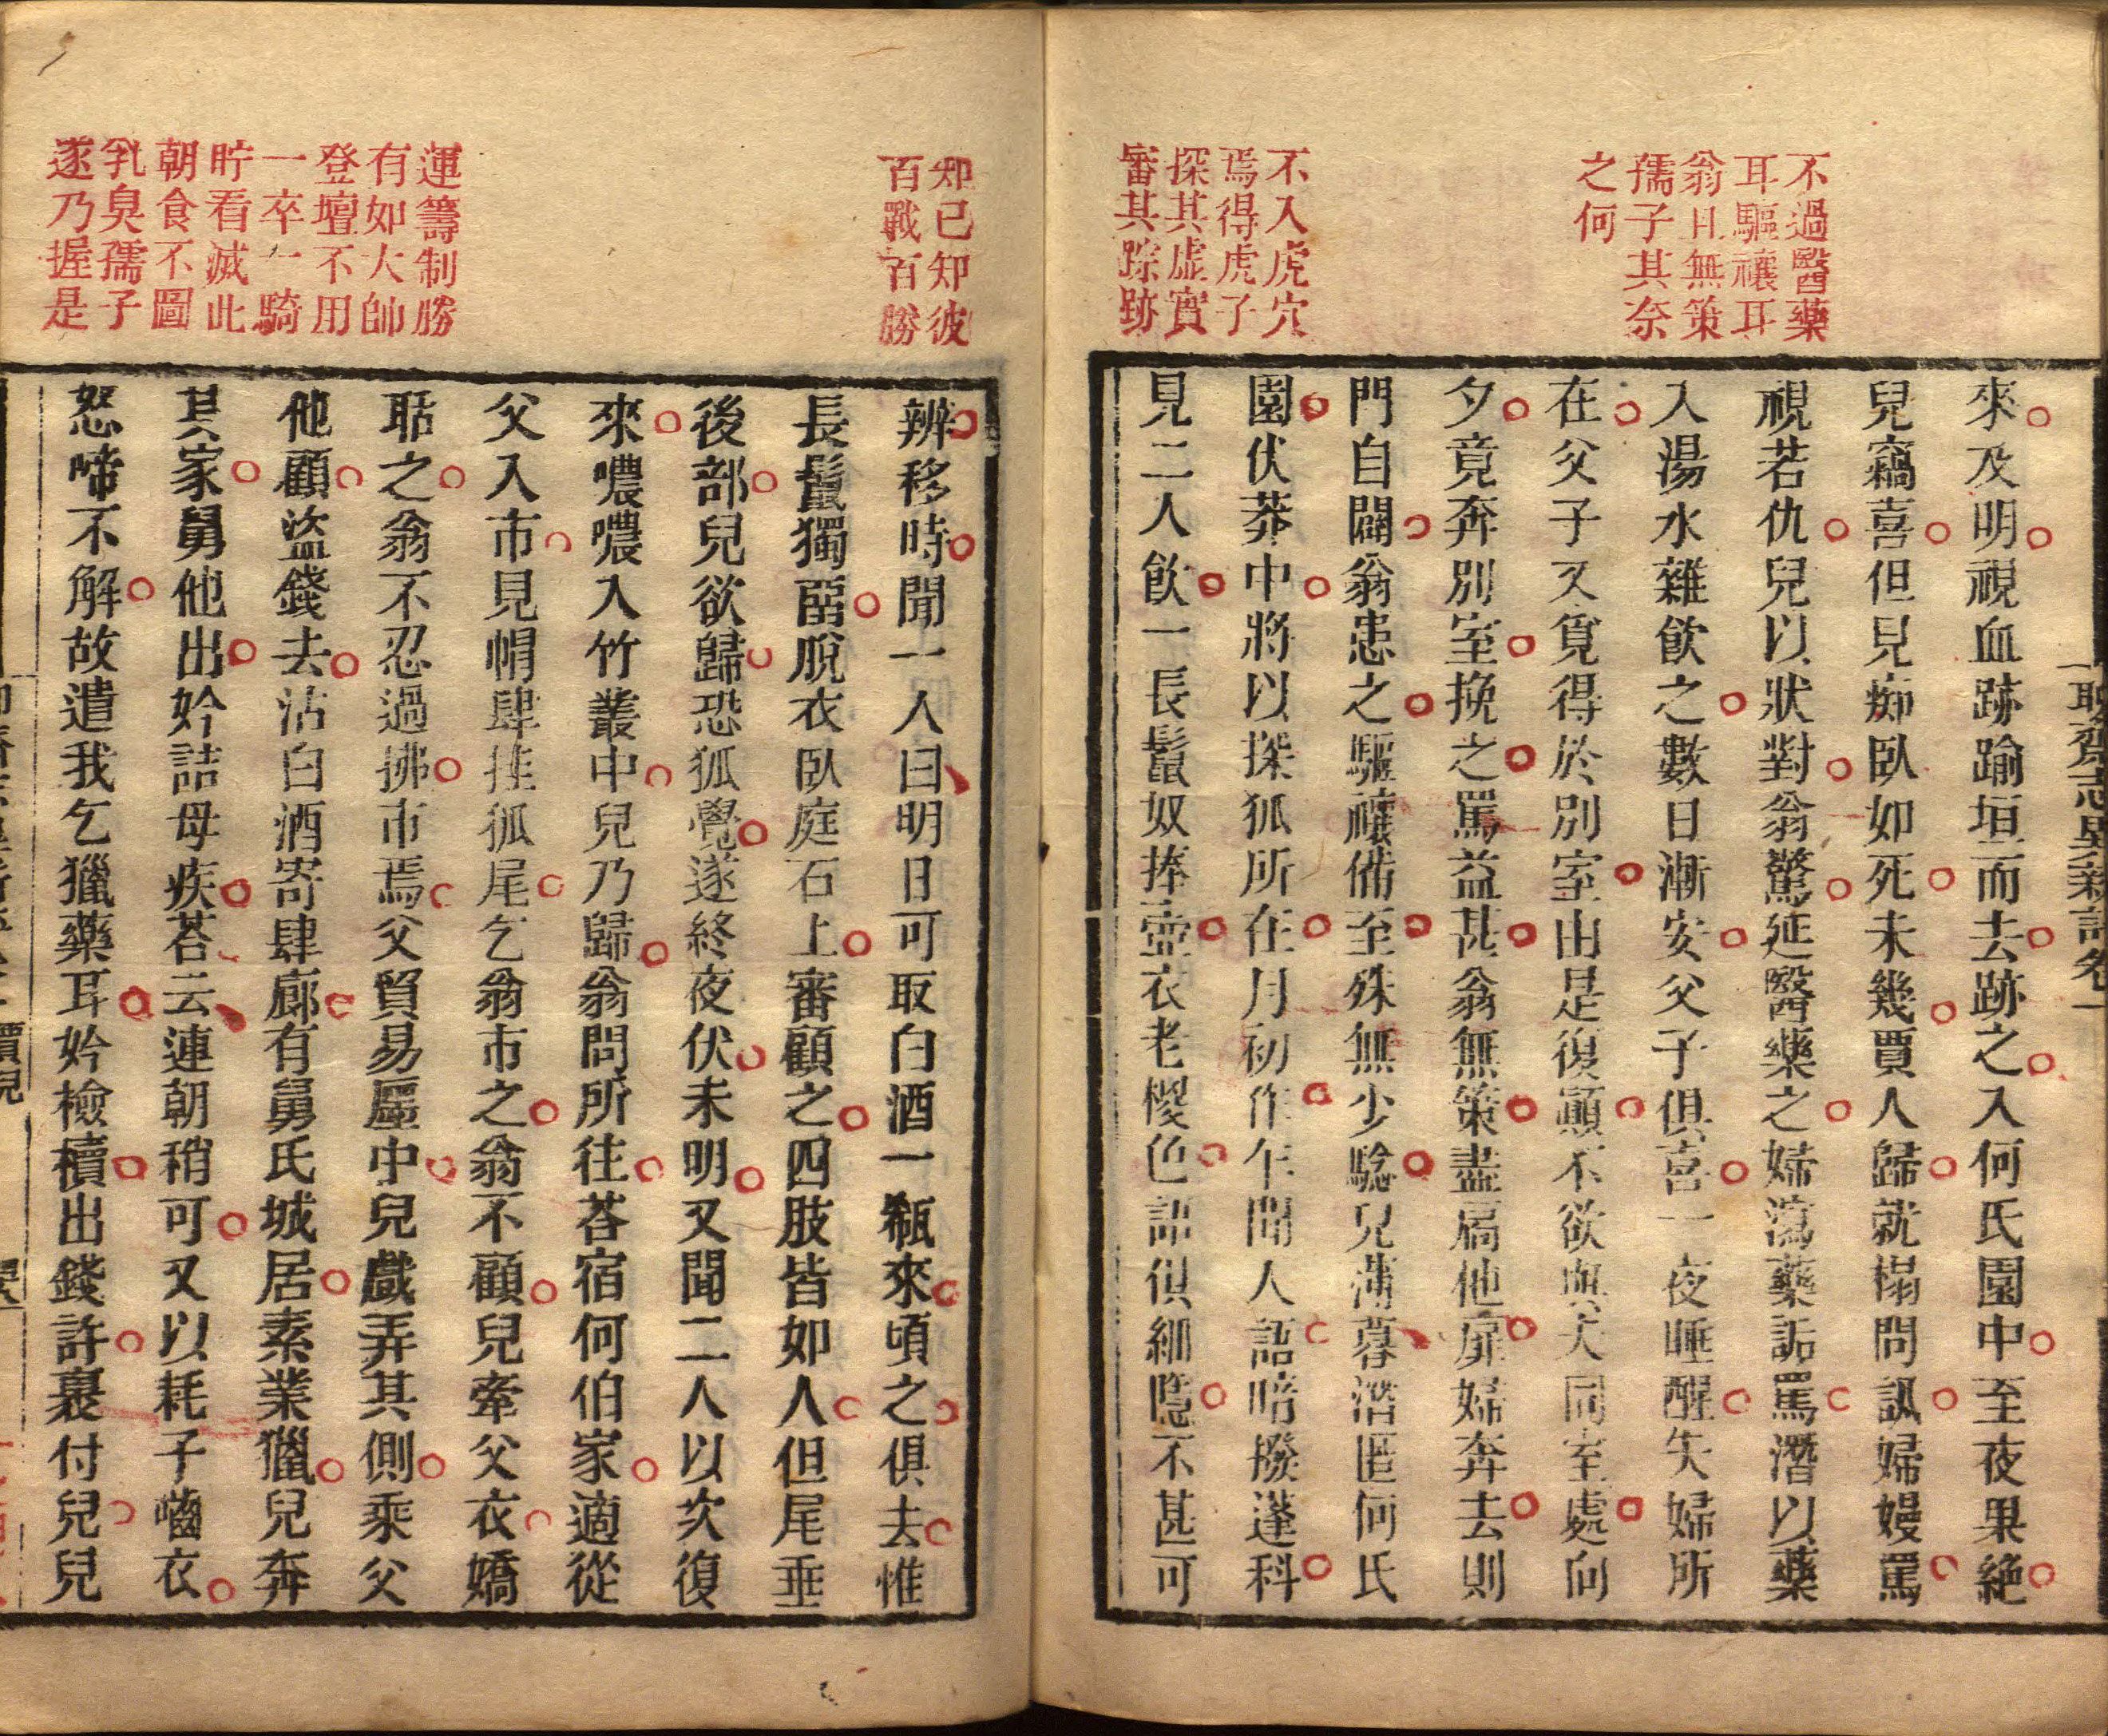 不過醫藥
耳驅禳耳
翁且無策
孺子其奈
之何
不入虎穴
焉得虎子
探其虛實
審其踪跡
聊齋志異新評卷一
來及明視血跡踰垣而去跡之入何氏園中至夜果絕
兒竊喜但見痴臥如死未幾賈人歸就榻問訊婦嫚罵
視若仇兒以狀對翁驚延醫藥之婦瀉藥詬罵潛以藥
入湯水雜飲之數日漸安父子俱喜一夜睡醒失婦所
在父子又覓得於別室由是復顚不欲與夫同室處向
夕竟奔別室挽之罵益甚翁無策盡扃他扉婦奔去則
門自闢翁患之驅禳備至殊無少騐兒薄暮潛匿何氏
園伏莽中將以探狐所在月初作乍聞人語暗撥蓬科
見二人飮一長鬛奴捧壺衣老椶色語俱細隱不甚可
知己知彼
百戰百勝
運籌制勝
有如大帥
登壇不用
一卒一騎
貯看滅此
朝食不圖
乳臭孺子
遂乃握是
辨移時聞一人曰明日可取白酒一瓻來頃之俱去惟
長鬛獨畱脫衣臥庭石上審顧之四肢皆如人但尾垂
後部兒欲歸恐狐覺遂終夜伏未明又聞二人以次復
來噥噥入竹叢中兒乃歸翁問所往荅宿何伯家適從
父入市見帽肆挂狐尾乞翁市之翁不顧兒牽父衣嬌
聒之翁不忍過拂市焉父貿易廛中兒戲弄其側乘父
他顧盜錢去沽白酒寄肆廊有舅氏城居素業獵兒奔
其家舅他出妗詰母疾荅云連朝稍可又以耗子嚙衣
怒啼不解故遣我乞獵藥耳妗檢櫝出錢許裹付兒兒
賈兒